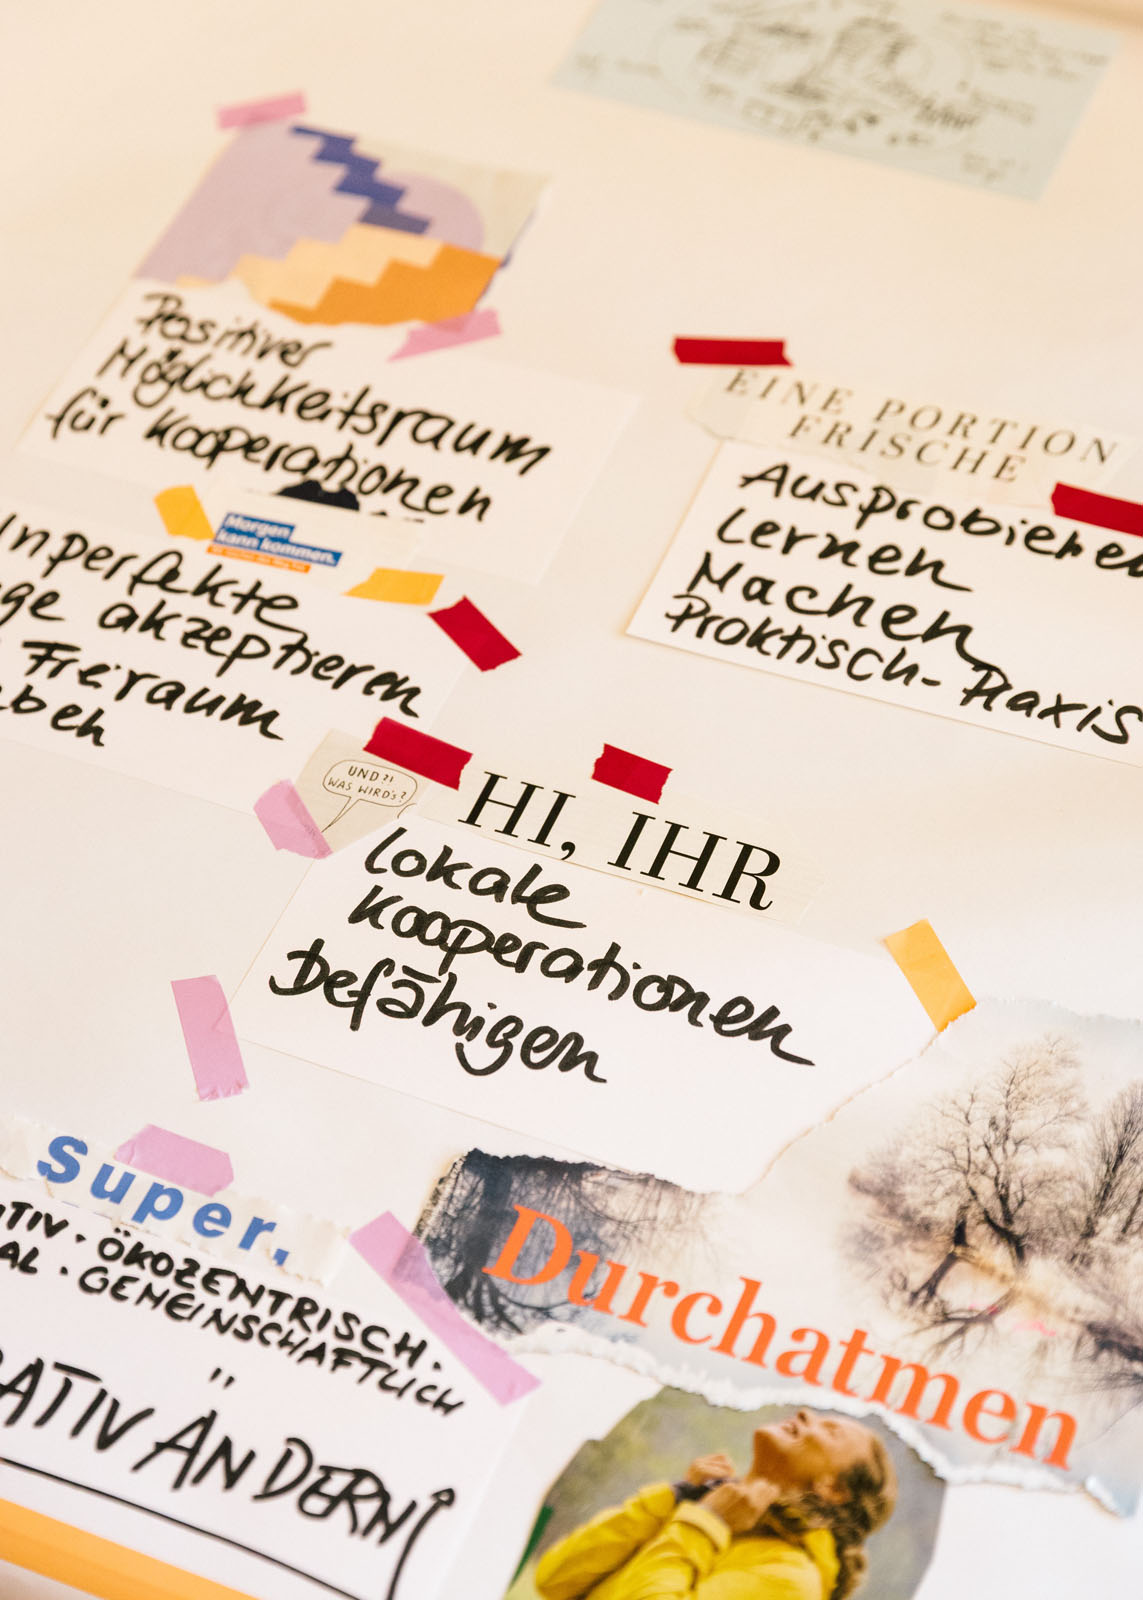 Positiver
Möglichkeitsraum
für Kooperationen
EINE PORTION
FRISCHE
Ausprobieren
Lernen
Machen
Praktisch-Praxis
Morgen
kann kommen.
Inperfekte
akzeptieren
Freiraum
UND?!
WAS WIRD'S?
HI, IHR
lokale
Kooperationen
Befähigen
Super.
TIV · ÖKOZENTRISCH ·
AL · GEMEINSCHAFTLICH
ATIV ÄNDERN
Durchatmen